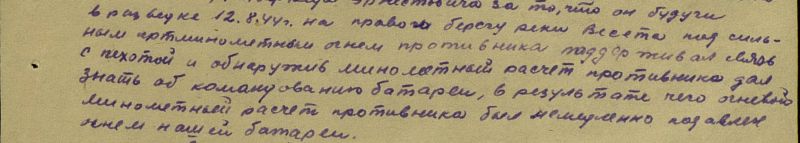 Эрнестовича за то, что он будучи
в разведке 12.8.44г. на правом берегу реки Весета под силь-
ным артминометным огнем противника поддерживал связь
с пехотой и обнаружив минометный расчет противника дал
знать об командованию батареи, в результате чего огневой
минометный расчет противника был немедленно подавлен
огнем нашей батареи.